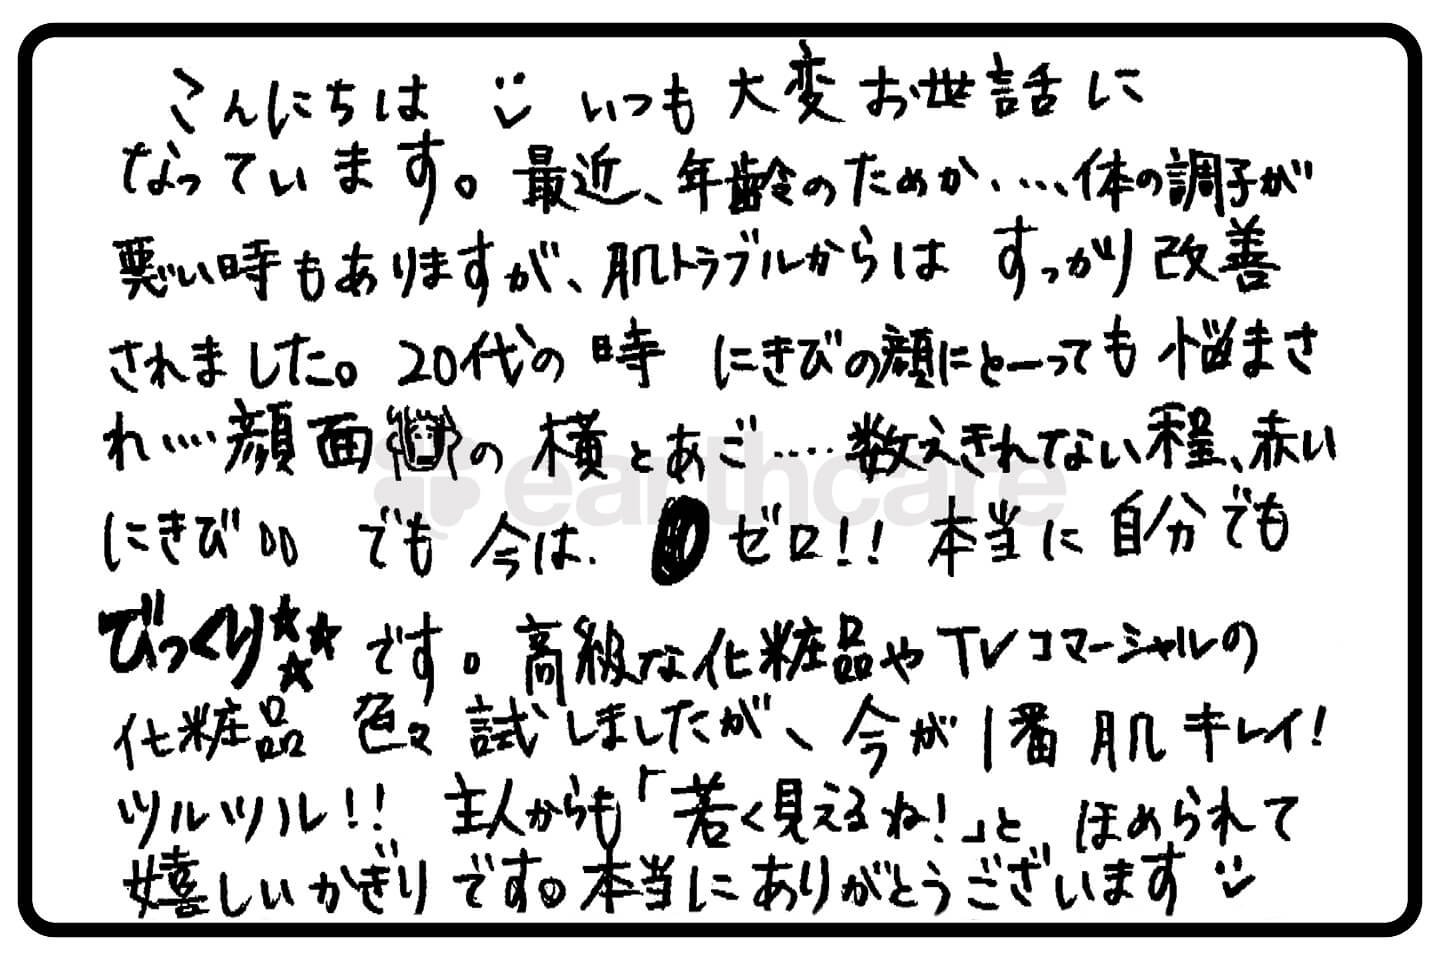 こんにちは いつも大変お世話に
なっています。最近、年齢のためか‥‥体の調子が
悪い時もありますが、肌トラブルからは すっかり改善
されました。20代の時 にきびの顔にと〜っても悩まさ
れ‥‥顔面の横とあご‥‥数えきれない程、赤い
にきび でも今は、ゼロ!! 本当に自分でも
びっくり☆☆☆です。高級な化粧品やTVコマーシャルの
化粧品 色々試しましたが、今が1番肌キレイ!
ツルツル!! 主人からも「若く見えるね!」と ほめられて
嬉しいかぎりです。本当にありがとうございます
earthcare